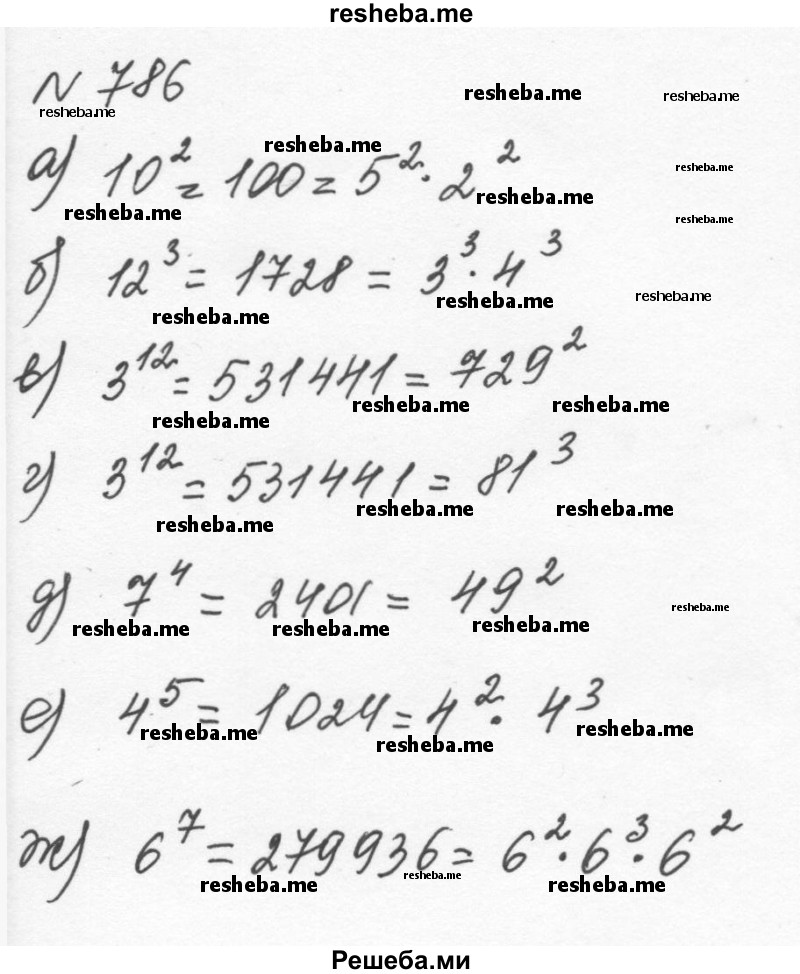 resheba.me
N 786
resheba.me
resheba.me
resheba.me
resheba.me
а) 10² = 100 = 5² · 2²
resheba.me
resheba.me
resheba.me
resheba.me
б) 12³ = 1728 = 3³ · 4³
resheba.me
resheba.me
resheba.me
в) 3¹² = 531441 = 729²
resheba.me
resheba.me
resheba.me
г) 3¹² = 531441 = 81³
resheba.me
resheba.me
resheba.me
д) 7⁴ = 2401 = 49²
resheba.me
resheba.me
resheba.me
resheba.me
е) 4⁵ = 1024 = 4² · 4³
resheba.me
resheba.me
resheba.me
ж) 6⁷ = 279936 = 6² · 6³ · 6²
resheba.me
resheba.me
resheba.me
Решеба.ми